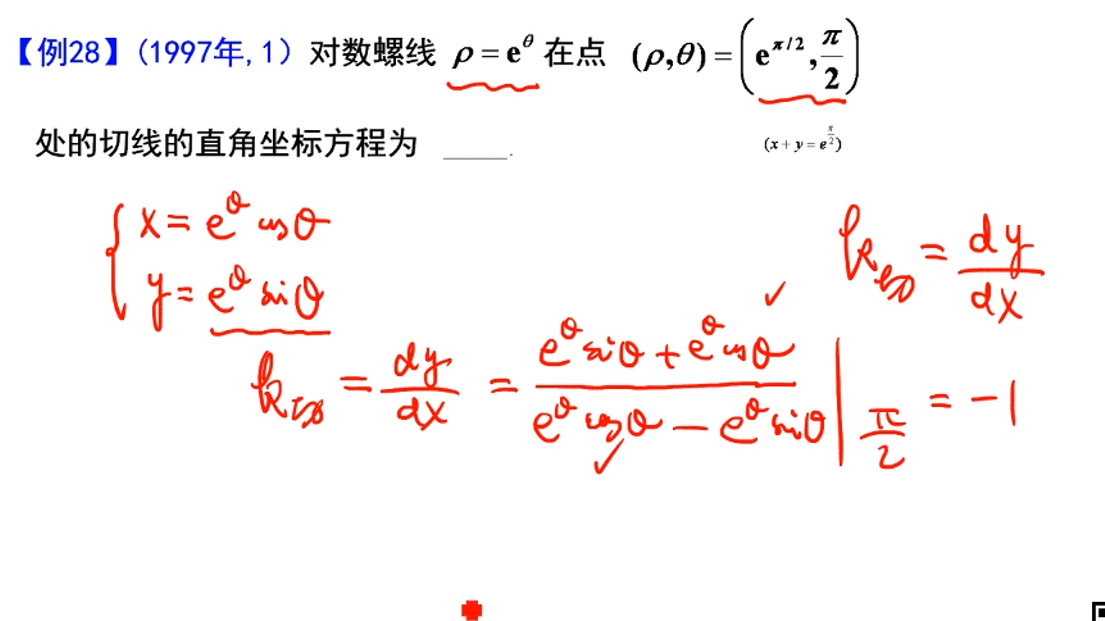 【例28】(1997年,1) 对数螺线 ρ = e^θ 在点 (ρ,θ) = (e^{π/2}, π/2)
处的切线的直角坐标方程为 ____.
(x + y = e^{π/2})
{ x = e^θ cosθ
y = e^θ sinθ
k切 = dy/dx
k切 = dy/dx = (e^θ sinθ + e^θ cosθ)/(e^θ cosθ − e^θ sinθ) | π/2 = −1